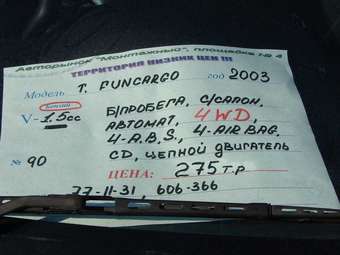 Авторынок "Монтажный", площадка № 4
ТЕРРИТОРИЯ НИЗКИХ ЦЕН !!!
Модель T. FUNCARGO год 2003
Бензин
V- 1.5cc
Б/ПРОБЕГА, С/САЛОН,
АВТОМАТ, 4WD,
4-A.B.S., 4-AIR BAG.
№ 90
CD, ЦЕПНОЙ ДВИГАТЕЛЬ
ЦЕНА: 275 Т.Р
77-11-31, 606-366